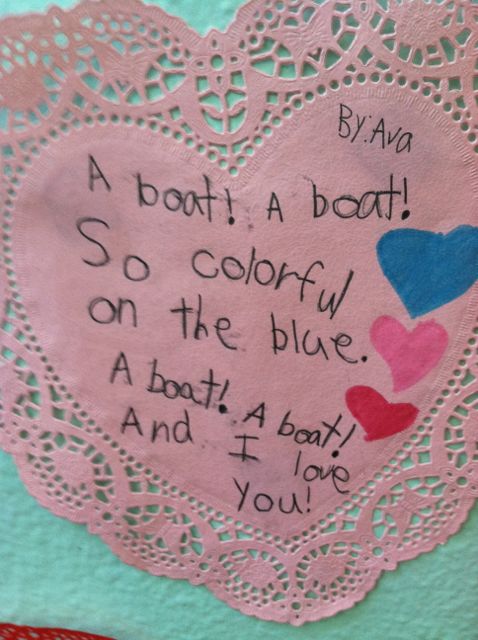 By: Ava
A boat! A boat!
So colorful
on the blue.
A boat! A boat!
And I love
you!